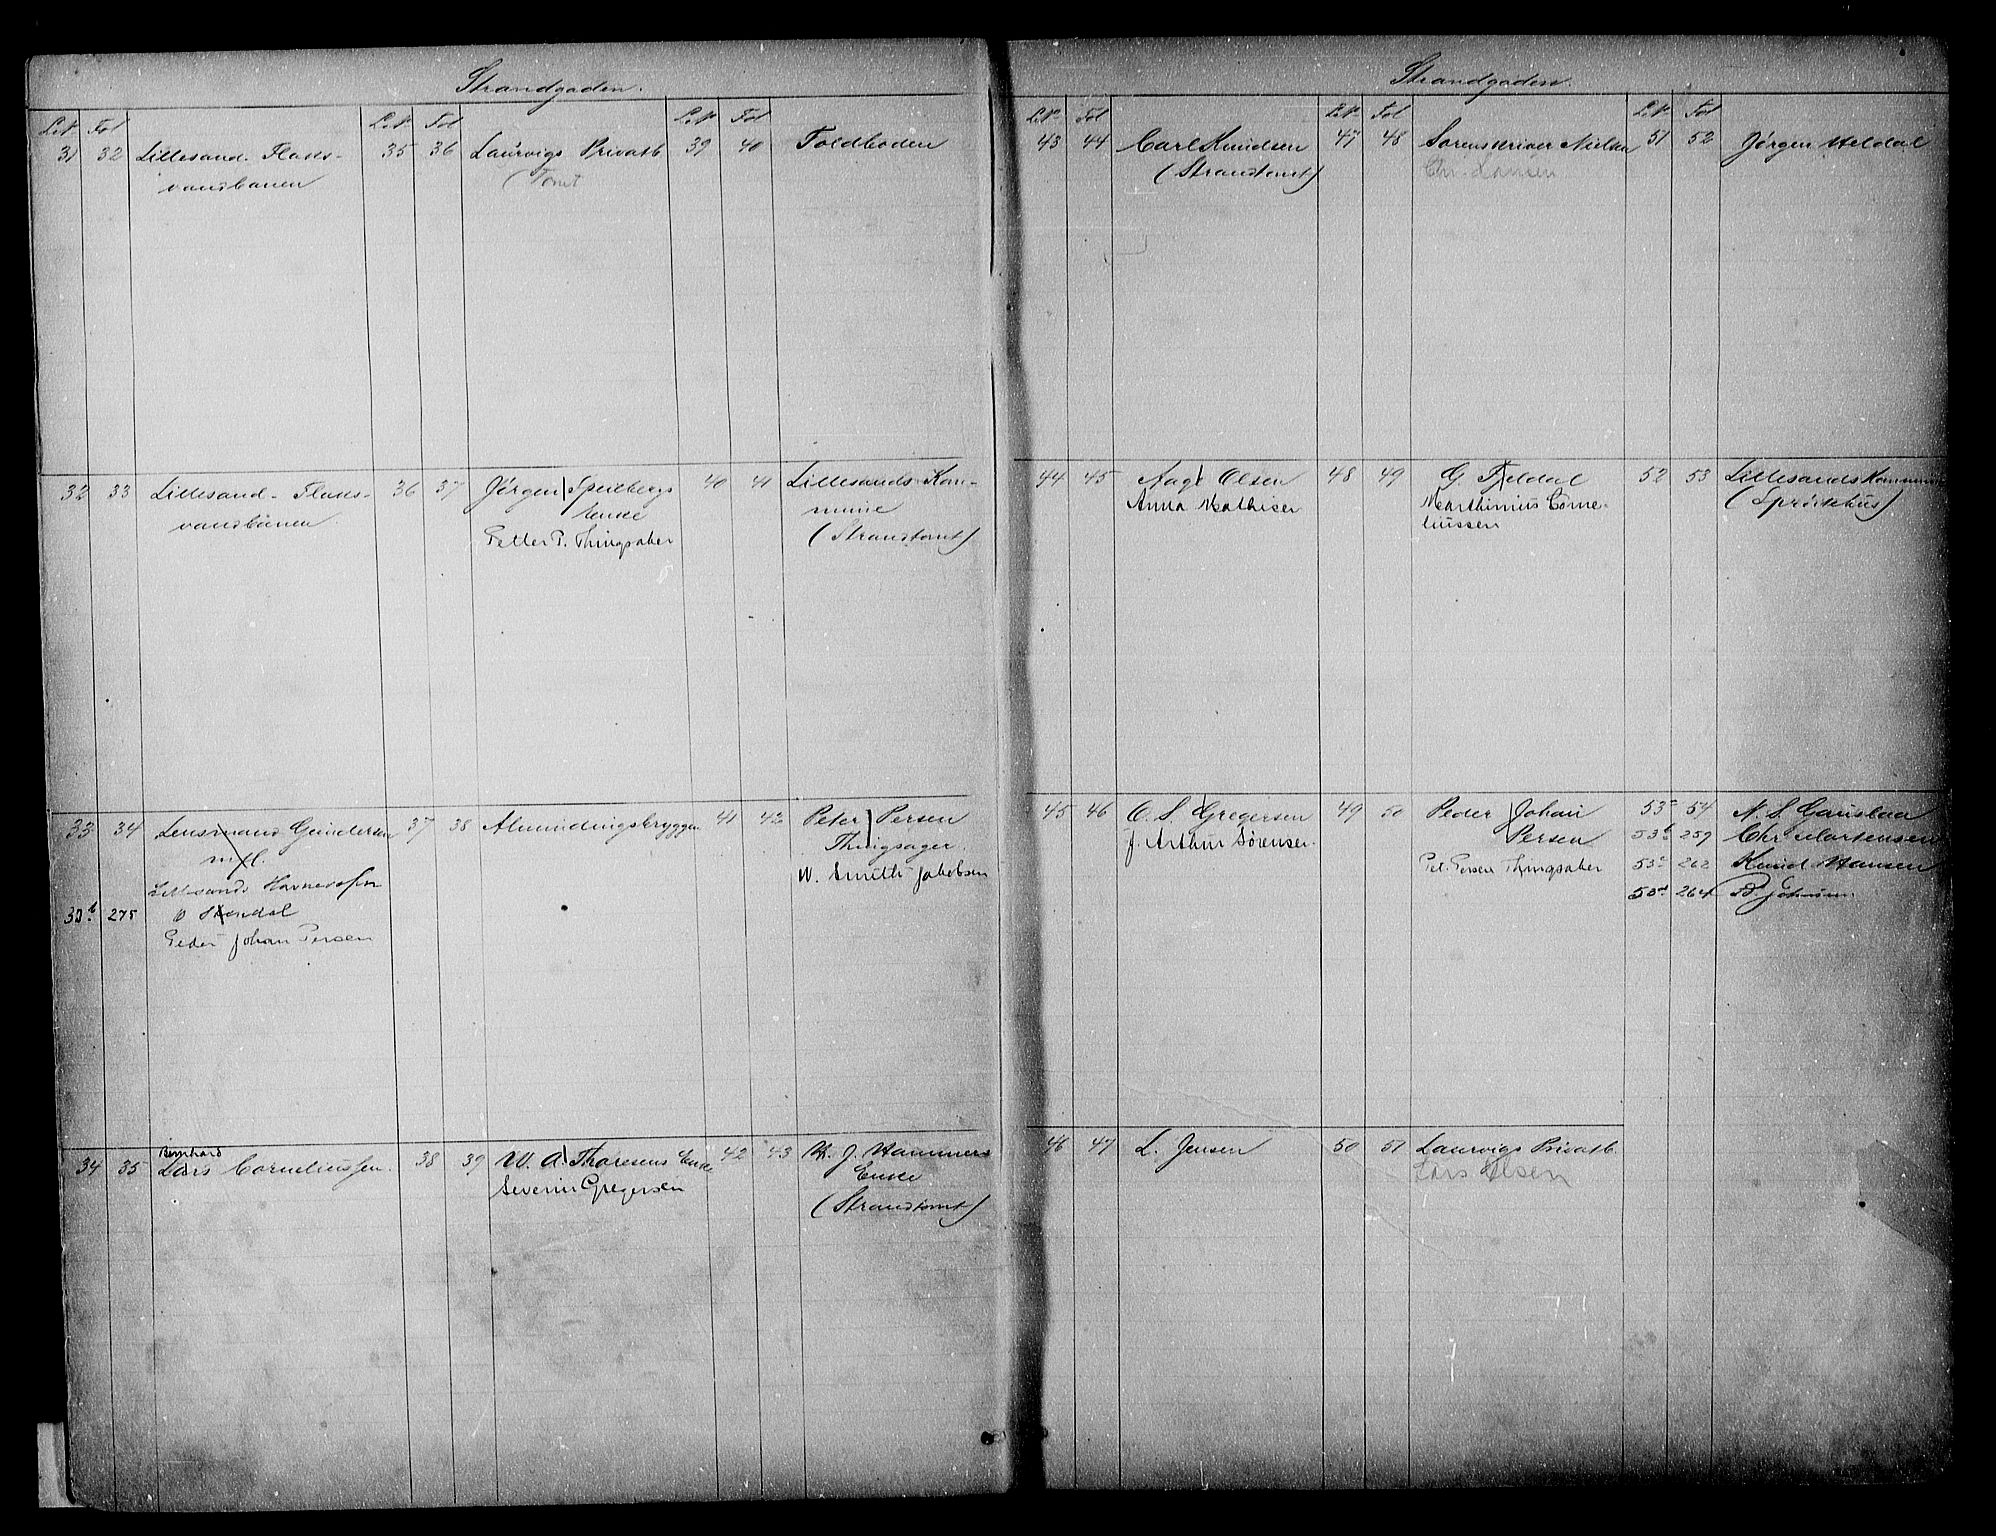 Strandgaden.
Lit. Fol
31 32 Lillesand-Flaks-
vandbanen
32 33 Lillesand-Flaks-
vandbanen.
33 34 Lensmand Gundersen
m fl.
Lillesands Havnevæsen
33b 275
Peder Johan Persen
34 35 Bernhard
Lars Corneliussen.
Lit. Fol
35 36 Laurvigs Privatb
(Tomt
36 37 Jörgen Speilbergs
Enke
Petter P. Thingsaker
37 38 Almindingsbryggen
38 39 W. A. Thoresens Enke
Severin Gregersen
Lit. Fol
39 40 Toldboden
40 41 Lillesands Kom-
mune
(Strandtomt)
41 42 Peter Persen
Thingsager.
W. Smith-Jakobsen
42 43 W. J. Hammers
Enke
(Strandtomt)
Strandgaden.
Lit. Fol
43 44 Carl Knudsen
(Strandtomt)
44 45 Aage Olsen
Anna Mathisen
45 46 O. S. Gregersen
J. Arthur Sörensen.
46 47 L. Jensen
Lit. Fol
47 48 Sorenskriver Nielsen
Chr. Hansen
48 49 G. Fjeldal
Marthinius Corne-
liussen
49 50 Peder Johan
Persen
Pet. Persen Thingsaker
50 51 Laurvigs Privatb
Lars Olsen
Lit. Fol
51 52 Jörgen Heldal
52 53 Lillesands Kommune
(Spröitehus)
53a 54 N. S. Gauslaa
53b 259 Chr Mortensen
53c 262 Knud Hansen
53d 264 B. Johnsen